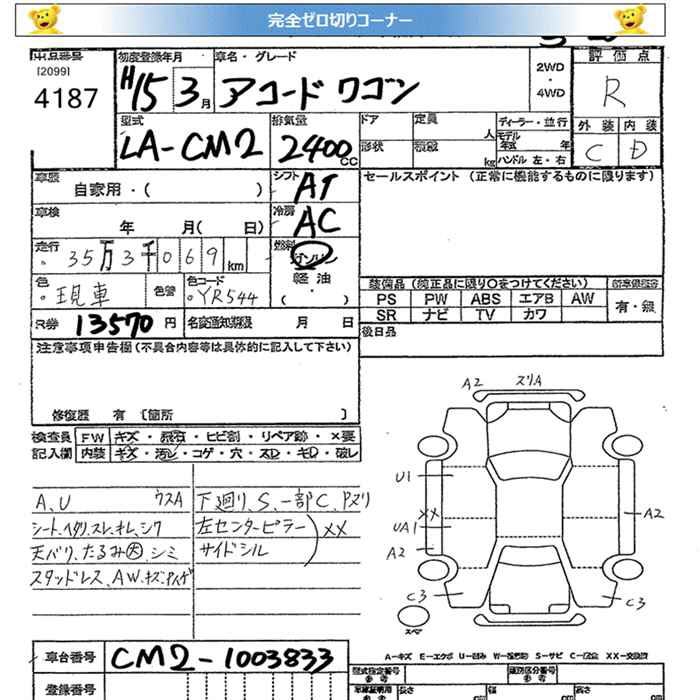 完全ゼロ切りコーナー
出品番号 初度登録年月 車名・グレード 評価点
[2099]
4187 H15 3月 アコードワゴン 2WD・4WD R
型式 排気量 ドア 定員 人 ディーラー・並行 外装 内装
LA-CM2 2400cc 形状 積載 kg モデル年式 年 ハンドル 左・右 C D
車歴 自家用・( ) シフト AT セールスポイント (正常に機能するものに限ります)
車検 年 月( 日) 冷房 AC
走行 35万3千069km 燃料 ガソリン
軽油
( ・ )
色 現車 色替 色コード YR544 装備品 (純正品に限り〇をつけてください)
PS PW ABS エアB AW 有・無
SR ナビ TV カワ
R券 13570円 名変通知期限 月 日 後日品
注意事項申告欄(不具合内容等は具体的に記入して下さい)
修復歴 有 〔箇所 〕
検査員 FW キズ・飛石・ヒビ割・リペア跡・×要
記入欄 内装 キズ・汚レ・コゲ・穴・スレ・キレ・破レ
A2 スリA
U1
XX
UA1
A2
A2
C3
C3
スペア
A、U ウスA 下廻り、S、一部C、Pヌリ
シート、ヘタリ、スレ、キレ、シワ 左センターピラー XX
天バリ、たるみ大、シミ サイドシル
スタッドレス、AW、キズ
A-キズ E-エクボ U-凹み S-サビ XX-交換済
車台番号 CM2-1003833
登録番号
型式指定番号 類別区分番号
参考 参考
長さ 幅 高さ